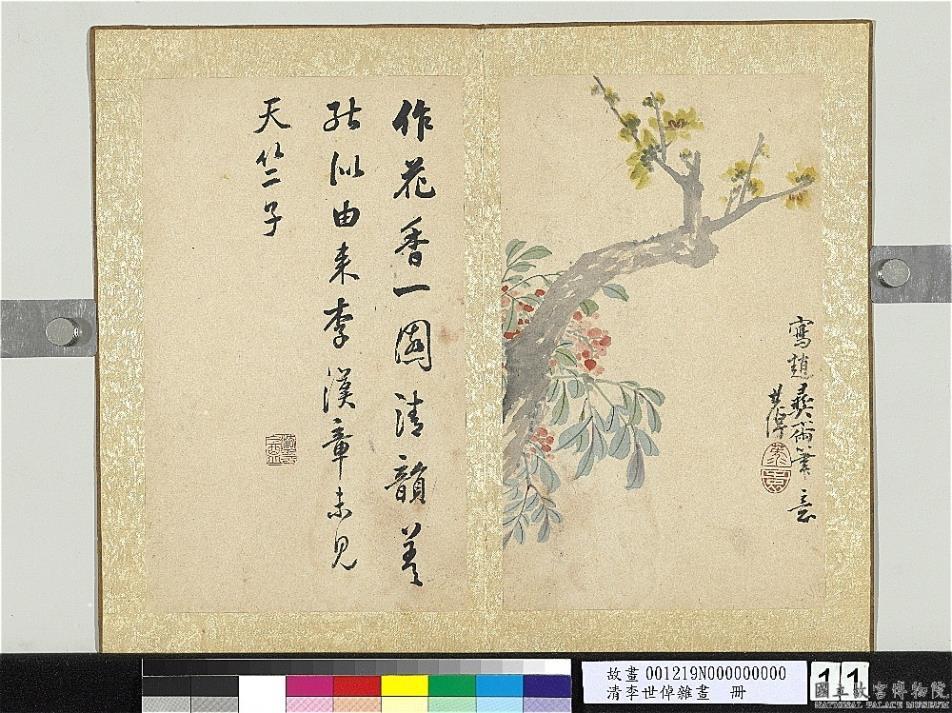 寫趙彝齋筆意
世倬
作花香一園清韻差
能似由來李漢章未見
天竺子
故畫 001219N000000000
清李世倬雜畫 冊
11
國立故宮博物院
NATIONAL PALACE MUSEUM